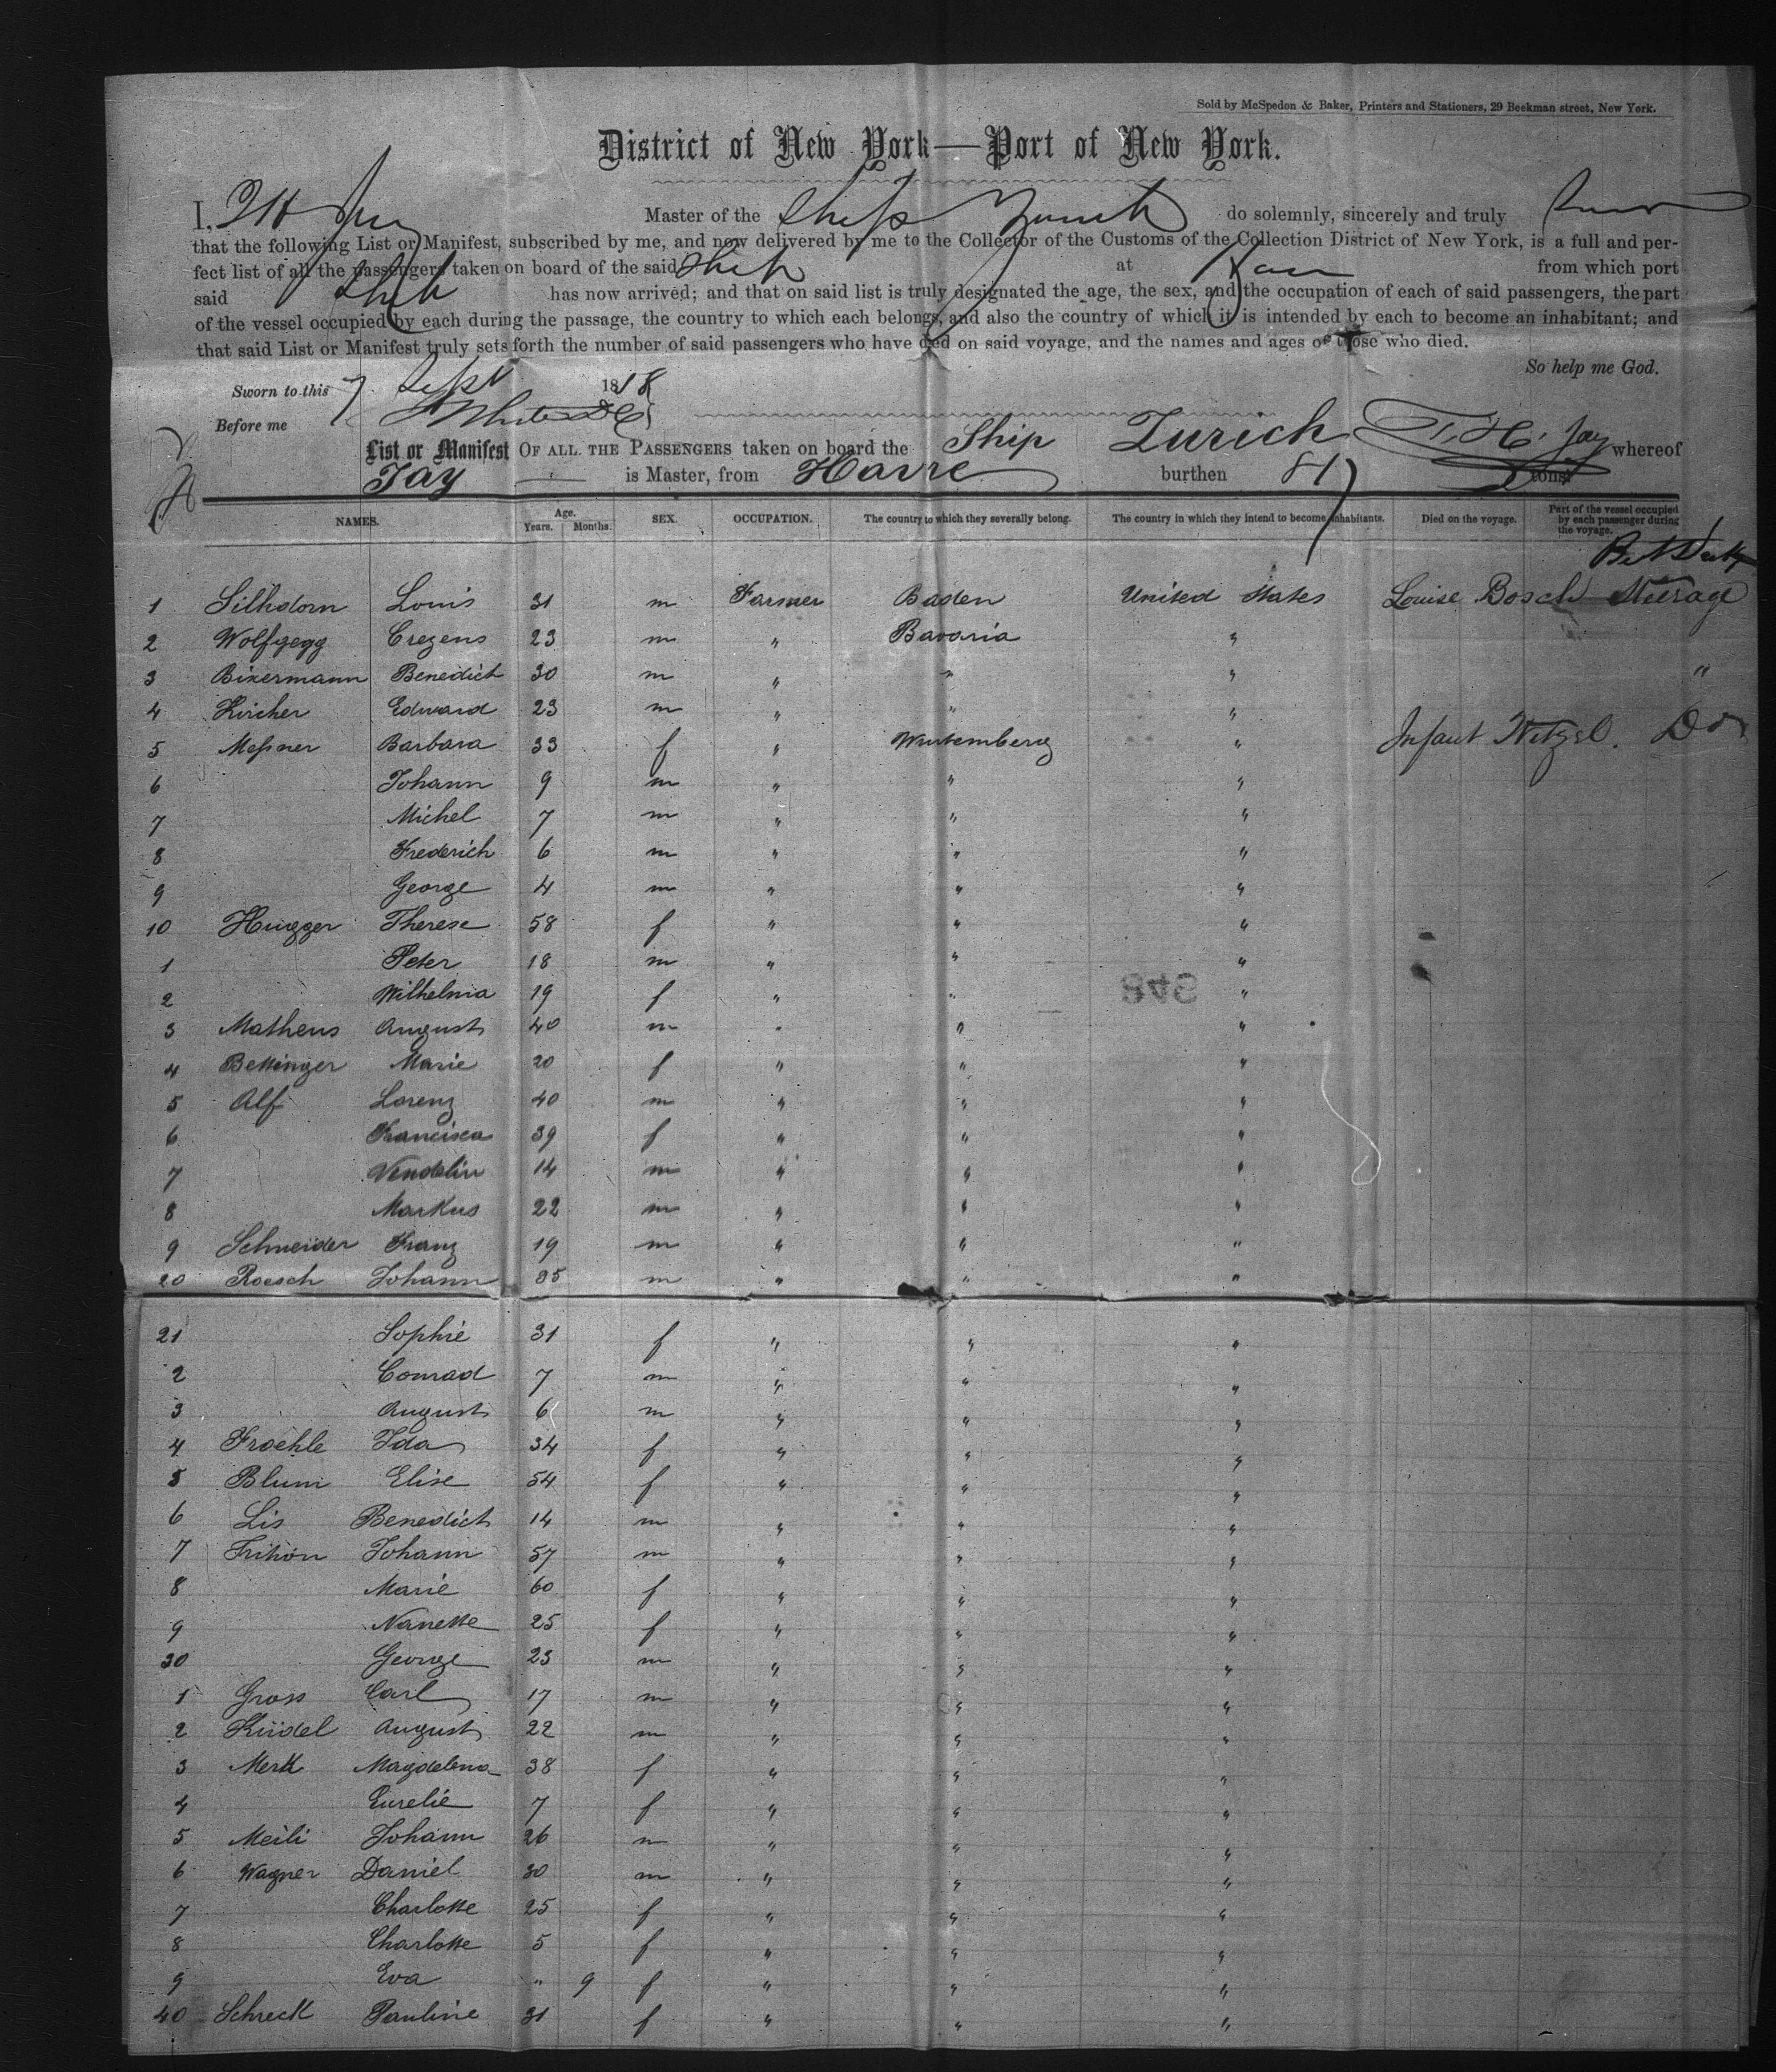 Sold by McSpedon & Baker, Printers and Stationers, 29 Beekman street, New York.
District of New York—Port of New York.
I, Master of the Ship Zurich do solemnly, sincerely and truly
that the following List or Manifest, subscribed by me, and now delivered by me to the Collector of the Customs of the Collection District of New York, is a full and per-
fect list of all the passengers taken on board of the said Ship at from which port
said Ship has now arrived; and that on said list is truly designated the age, the sex, and the occupation of each of said passengers, the part
of the vessel occupied by each during the passage, the country to which each belongs, and also the country of which it is intended by each to become an inhabitant; and
that said List or Manifest truly sets forth the number of said passengers who have died on said voyage, and the names and ages of those who died.
So help me God.
Sworn to this 7 Sept 18
Before me
List or Manifest OF ALL THE PASSENGERS taken on board the Ship Zurich T. H. Jay whereof
Jay is Master, from Havre burthen 817 tons
NAMES. Age. Years. Months. SEX. OCCUPATION. The country to which they severally belong. The country in which they intend to become inhabitants. Died on the voyage. Part of the vessel occupied by each passenger during the voyage.
1 Silhdorn Louis 31 m Farmer Baden United States Louise Bosch Steerage
2 Wolfgegg Crezens 23 m " Bavaria "
3 Bixermann Benedict 30 m " " " "
4 Kircher Edward 23 m " " "
5 Messner Barbara 33 f " Wurtemberg " Infant Do
6 Johann 9 m " " "
7 Michel 7 m " " "
8 Frederich 6 m " " "
9 George 4 m " " "
10 Hugger Therese 58 f " " "
1 Peter 18 m " " "
2 Wilhelmia 19 f " " "
3 Matheus August 40 m " " "
4 Bettinger Marie 20 f " " "
5 Alf Lorenz 40 m " " "
6 Francisca 39 f " " "
7 Vendelin 14 m " " "
8 Markus 22 m " " "
9 Schneider Franz 19 m " " "
20 Roesch Johann 35 m " " "
21 Sophie 31 f " " "
2 Conrad 7 m " " "
3 August 6 m " " "
4 Froehle Ida 34 f " " "
5 Blum Elise 54 f " " "
6 Lis Benedict 14 m " " "
7 Johann 57 m " " "
8 Marie 60 f " " "
9 Nanette 25 f " " "
30 George 23 m " " "
1 Gross Carl 17 m " " "
2 Küdel August 22 m " " "
3 Merk Magdelena 38 f " " "
4 Eurelie 7 f " " "
5 Meili Johann 26 m " " "
6 Wagner Daniel 30 m " " "
7 Charlotte 25 f " " "
8 Charlotte 5 f " " "
9 Eva " 9 f " " "
40 Schreck Pauline 31 f " " "